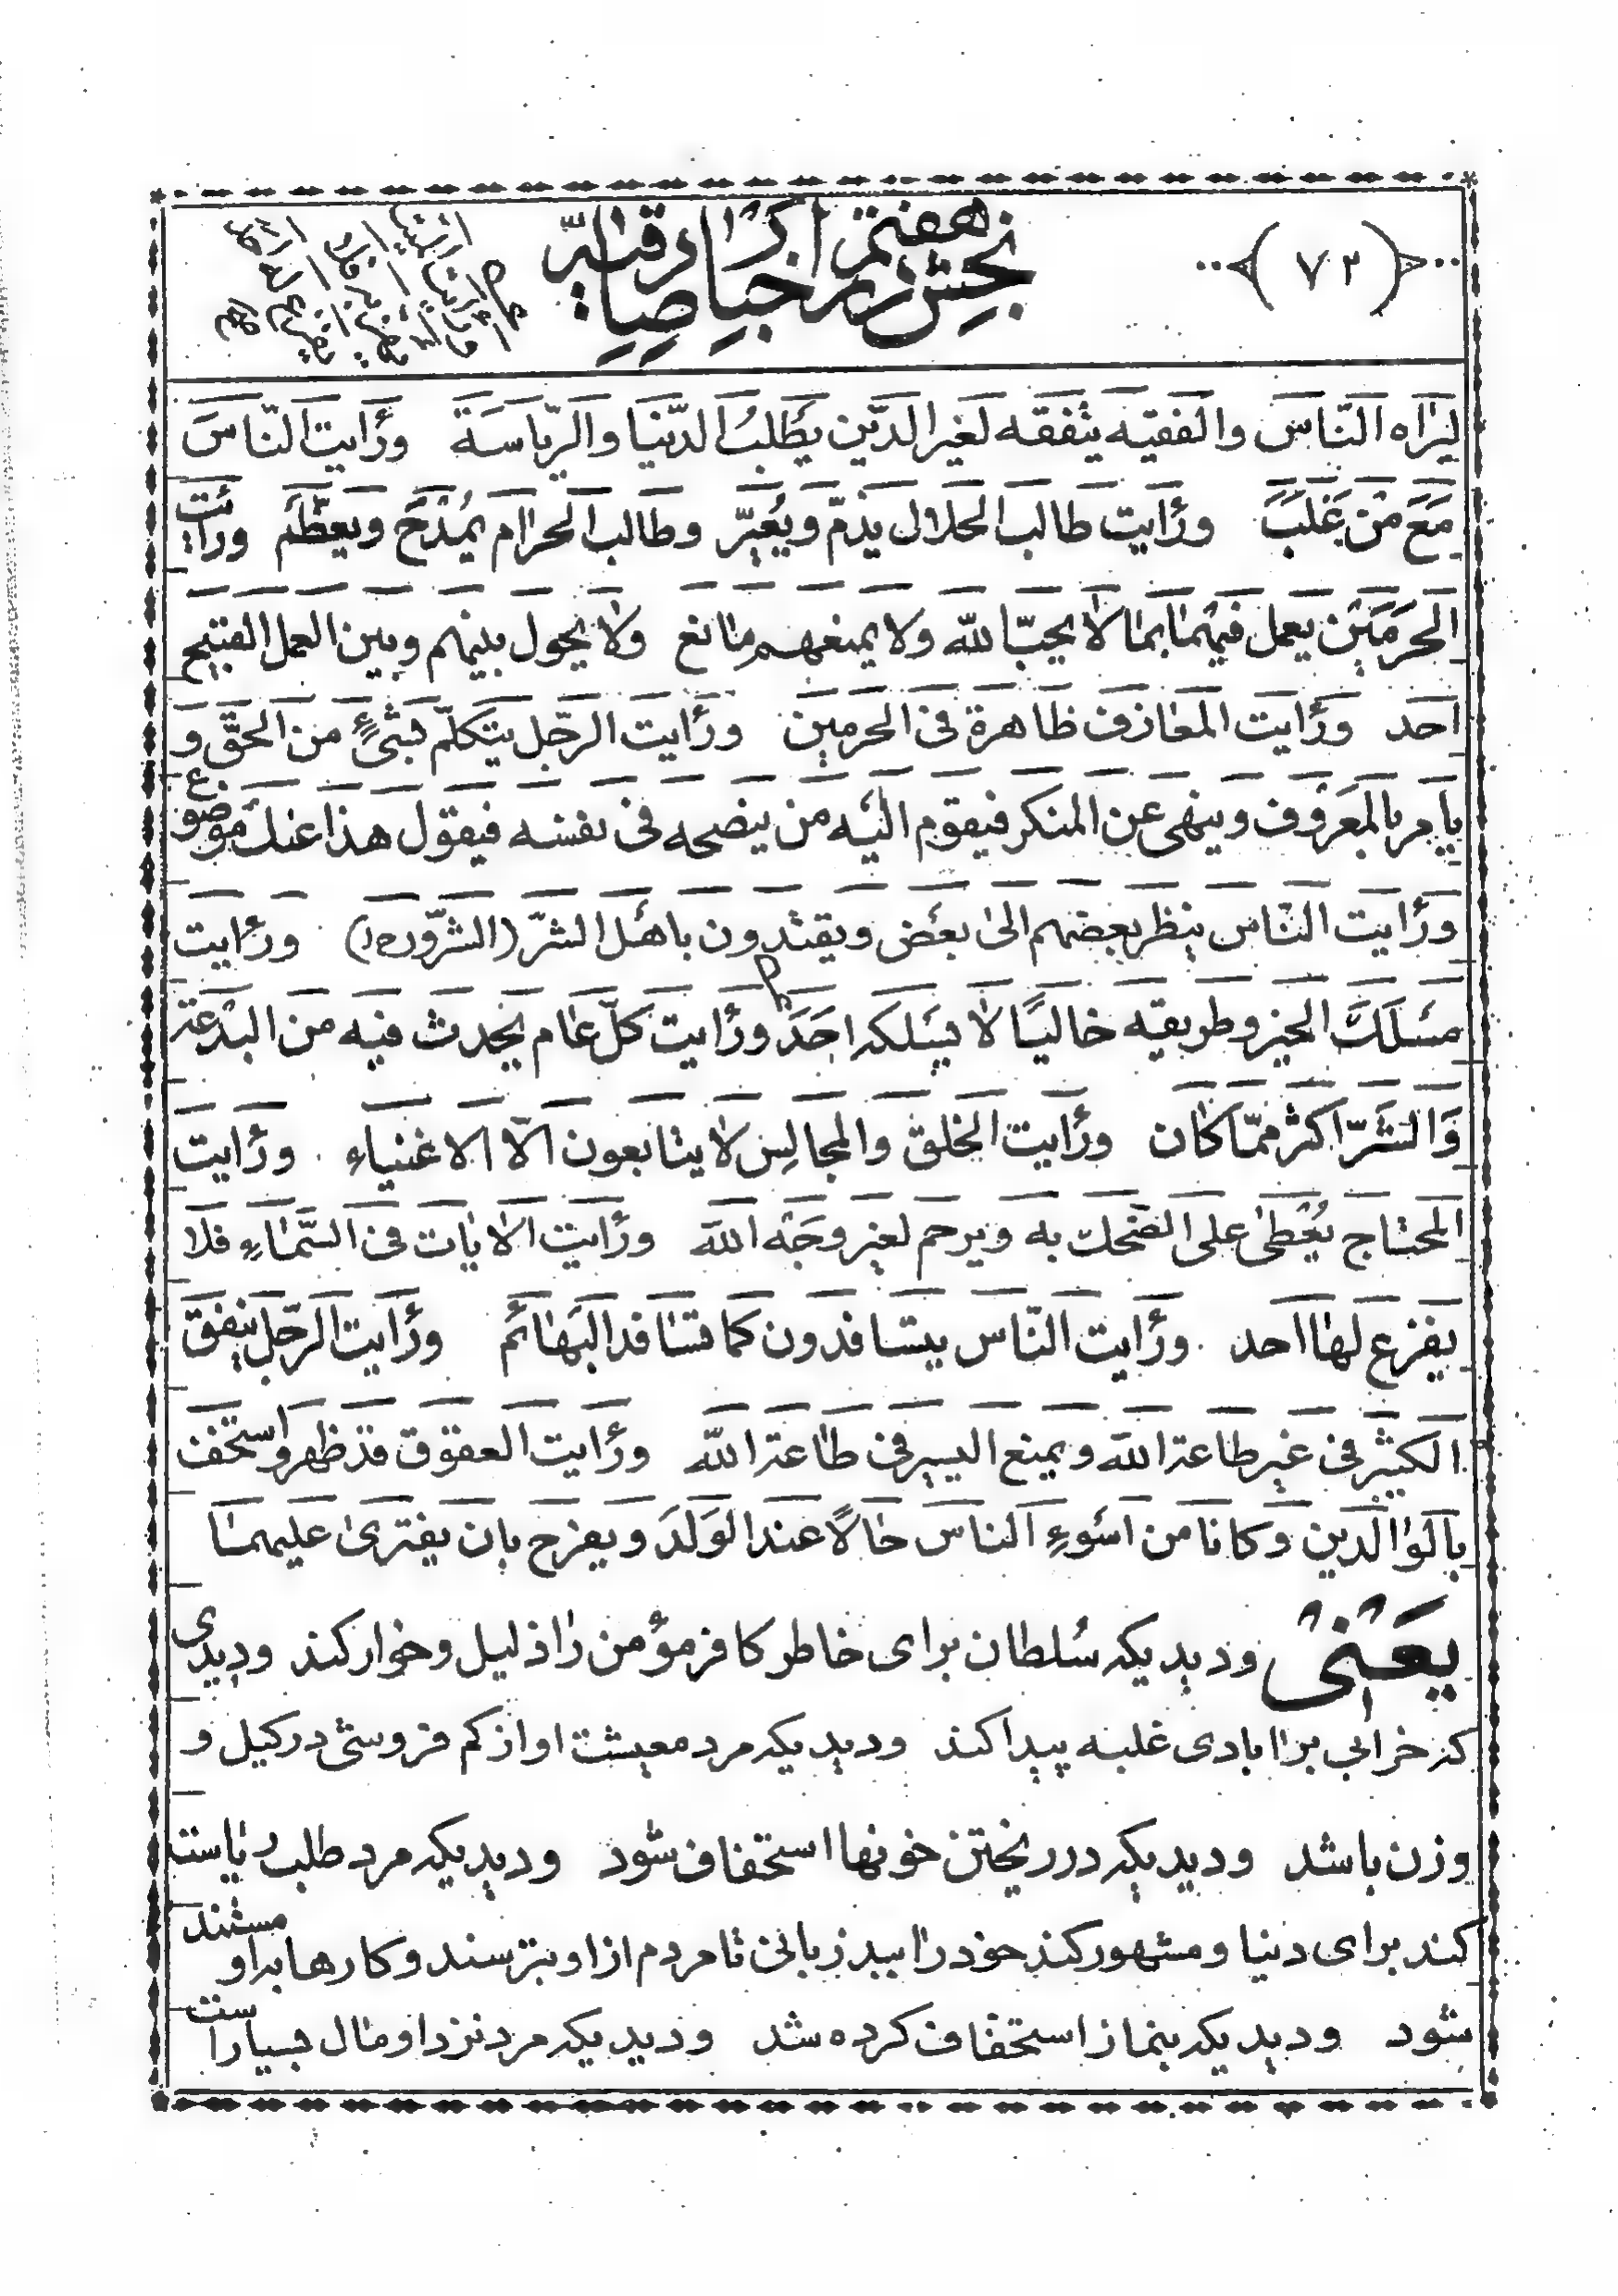 ﴿۷۲﴾
بخش هفتم
لیراه النّاس والفقیه یتفقه لغیر الدّین یطلب الدّنیا والرّیاسة ورأیت النّاس
مع من غلب ورأیت طالب الحلال یذمّ ویُعیّر وطالب الحرام یُمدح ویعظّم ورأیت
الحرمین یعمل فیهما بما لا یحبّ الله ولا یمنعهم مانع ولا یحول بینهم وبین العمل القبیح
احد ورأیت المعازف ظاهرة فی الحرمین ورأیت الرّجل یتکلّم بشیءٍ من الحقّ و
یأمر بالمعروف وینهی عن المنکر فیقوم الیه من ینصحه فی نفسه فیقول هذا عنك موضوع
ورأیت النّاس ینظر بعضهم الی بعض ویقتدون باهل الشرّ (الشّرور ه) ورأیت
مسلك الخیر وطریقه خالیًا لا یسلکه احد ورأیت کلّ عام یحدث فیه من البدعة
والشّرّ اکثر ممّا کان ورأیت الخلق والمجالس لا یتابعون الّا الاغنیاء ورأیت
المحتاج یُعطی علی الضّحك به ویرحم لغیر وجه الله ورأیت الایات فی السّماء فلا
یفزع لها احد ورأیت النّاس یتسافدون کما تسافد البهائم ورأیت الرّجل ینفق
الکثیر فی غیر طاعة الله ویمنع الیسیر فی طاعة الله ورأیت العقوق قد ظهر واستخف
بالوالدین وکانا من اسوءِ الناس حالًا عند الولد ویفرح بان یفتری علیهما
یعنی ودیدیکه سُلطان برای خاطر کافر مؤمن را ذلیل وخوار کند ودیدی
که خرابی برابادی غلبه پیدا کند ودیدیکه مرد معیشت او از کم فروشی در کیل و
وزن باشد ودیدیکه در ریختن خونها استخفاف شود ودیدیکه مرد طلب ریاست
کند برای دنیا ومشهور کند خود را ببد زبانی تا مردم از او بترسند وکارها به او مستند
شود ودیدیکه بنماز استخفاف کرده شد ودیدیکه مرد نزد او مال بسیار است